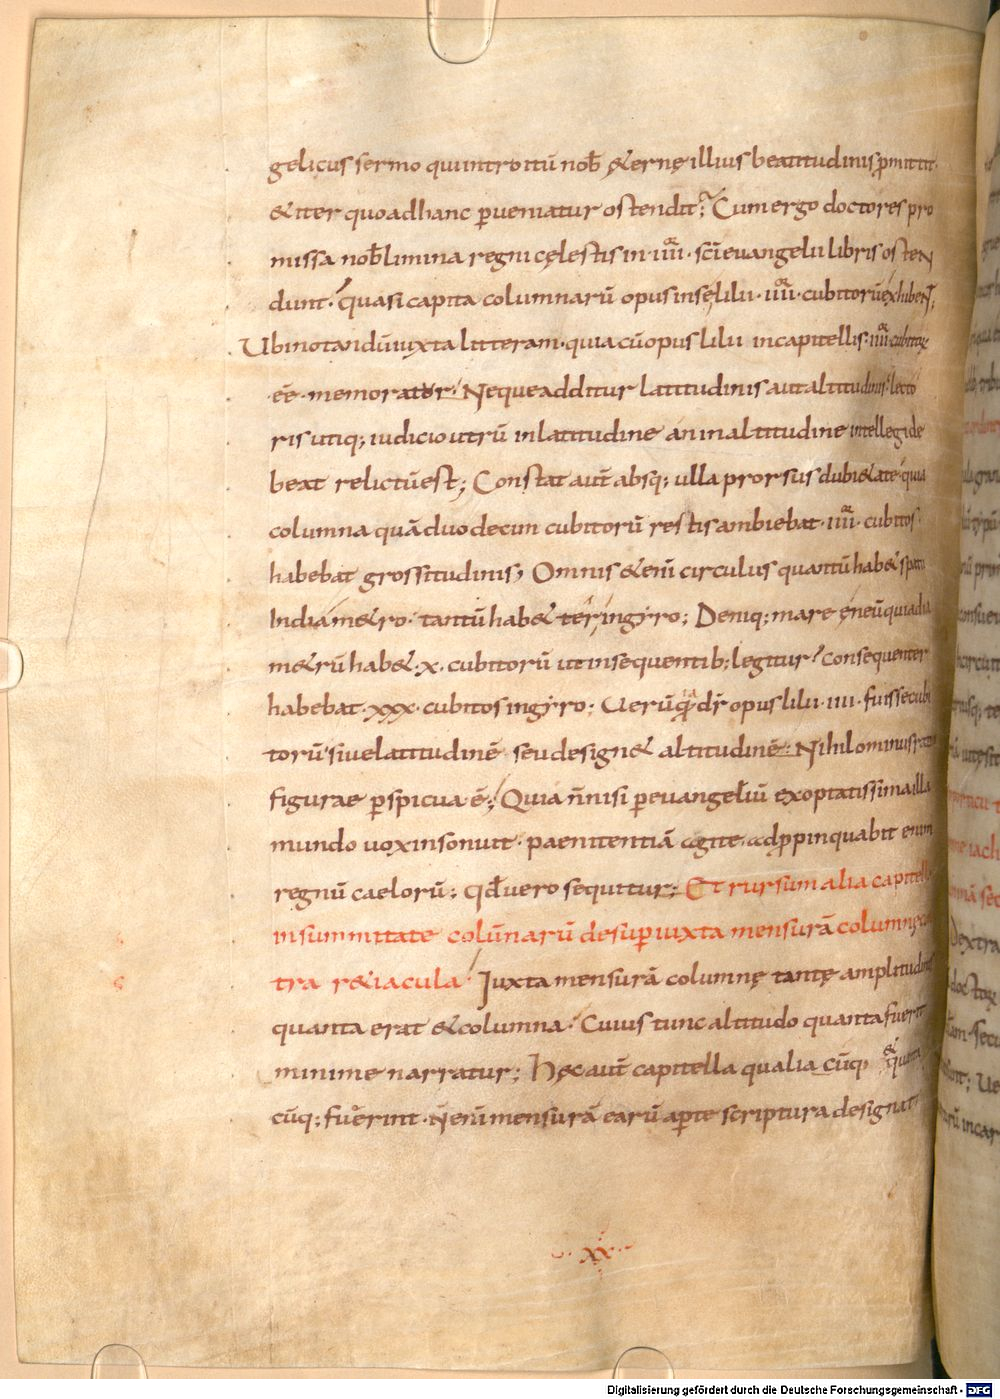 gelicus sermo qui introitū nob̄ ęternę illius beatitudinis promittit
& iter quo ad hanc ꝑueniatur ostendit; Cum ergo doctores pro
missa nob̄ limina regni cęlestis in ·iiii· sc̄i euangelii libris osten
dunt· quasi capita columnarū opus in se lilii ·iiii· cubitorū exhibent;
Ubi notandū iuxta litteram· quia cū opus lilii in capitellis ·iiii· cubitorꝝ
·eē· memoratur· Neque additur latitudinis aut altitudinis· lecto
ris utiq; iudicio utrū in latitudine an in altitudine intellegi de
beat relictū est; Constat aut̄ absq; ulla prorsus dubi&ate· quia
columna quā duodecim cubitorū restis ambiebat ·iiii· cubitos·
habebat grossitudinis, Omnis &enī circulus quantū hab& spatii
In diam&ro· tantū hab& ter in gyro; Deniq; mare ęneū quia dia
m&rū hab& ·x· cubitorū ut in sequentib; legitur· consequenter
habebat ·xxx· cubitos in gyro; Uerū quia dr̄ opus lilii ·iiii· fuisse cubi
torū siue latitudinē seu design& altitudinē; Nihilominus ratio
figurae ꝑspicua ē; Quia n̄ nisi ꝑ euangeliū exoptatissima illa
mundo uox insonuit· paenitentiā agite· adpropinquabit enim
regnū caelorū; Qd̄ uero sequitur; Et rursum alia capitella
in summitate colūnarū desuꝑ iuxta mensurā columnę con
tra r&iacula· Iuxta mensurā columnę tantę amplitudinis
quanta erat & columna· Cuius tunc altitudo quanta fuerit
minime narratur; Hęc aut̄ capitella qualia cūq; & quanta
cūq; fuerint· n̄ enī mensurā earū aꝑte scriptura designat
·xx·
Digitalisierung gefördert durch die Deutsche Forschungsgemeinschaft - DFG